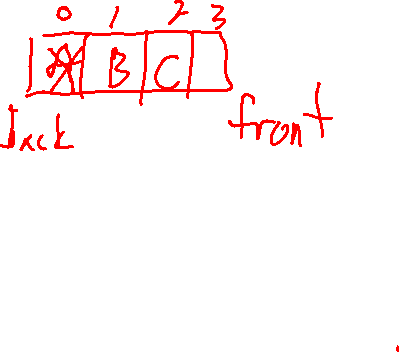 0 1 2 3
B C
back front